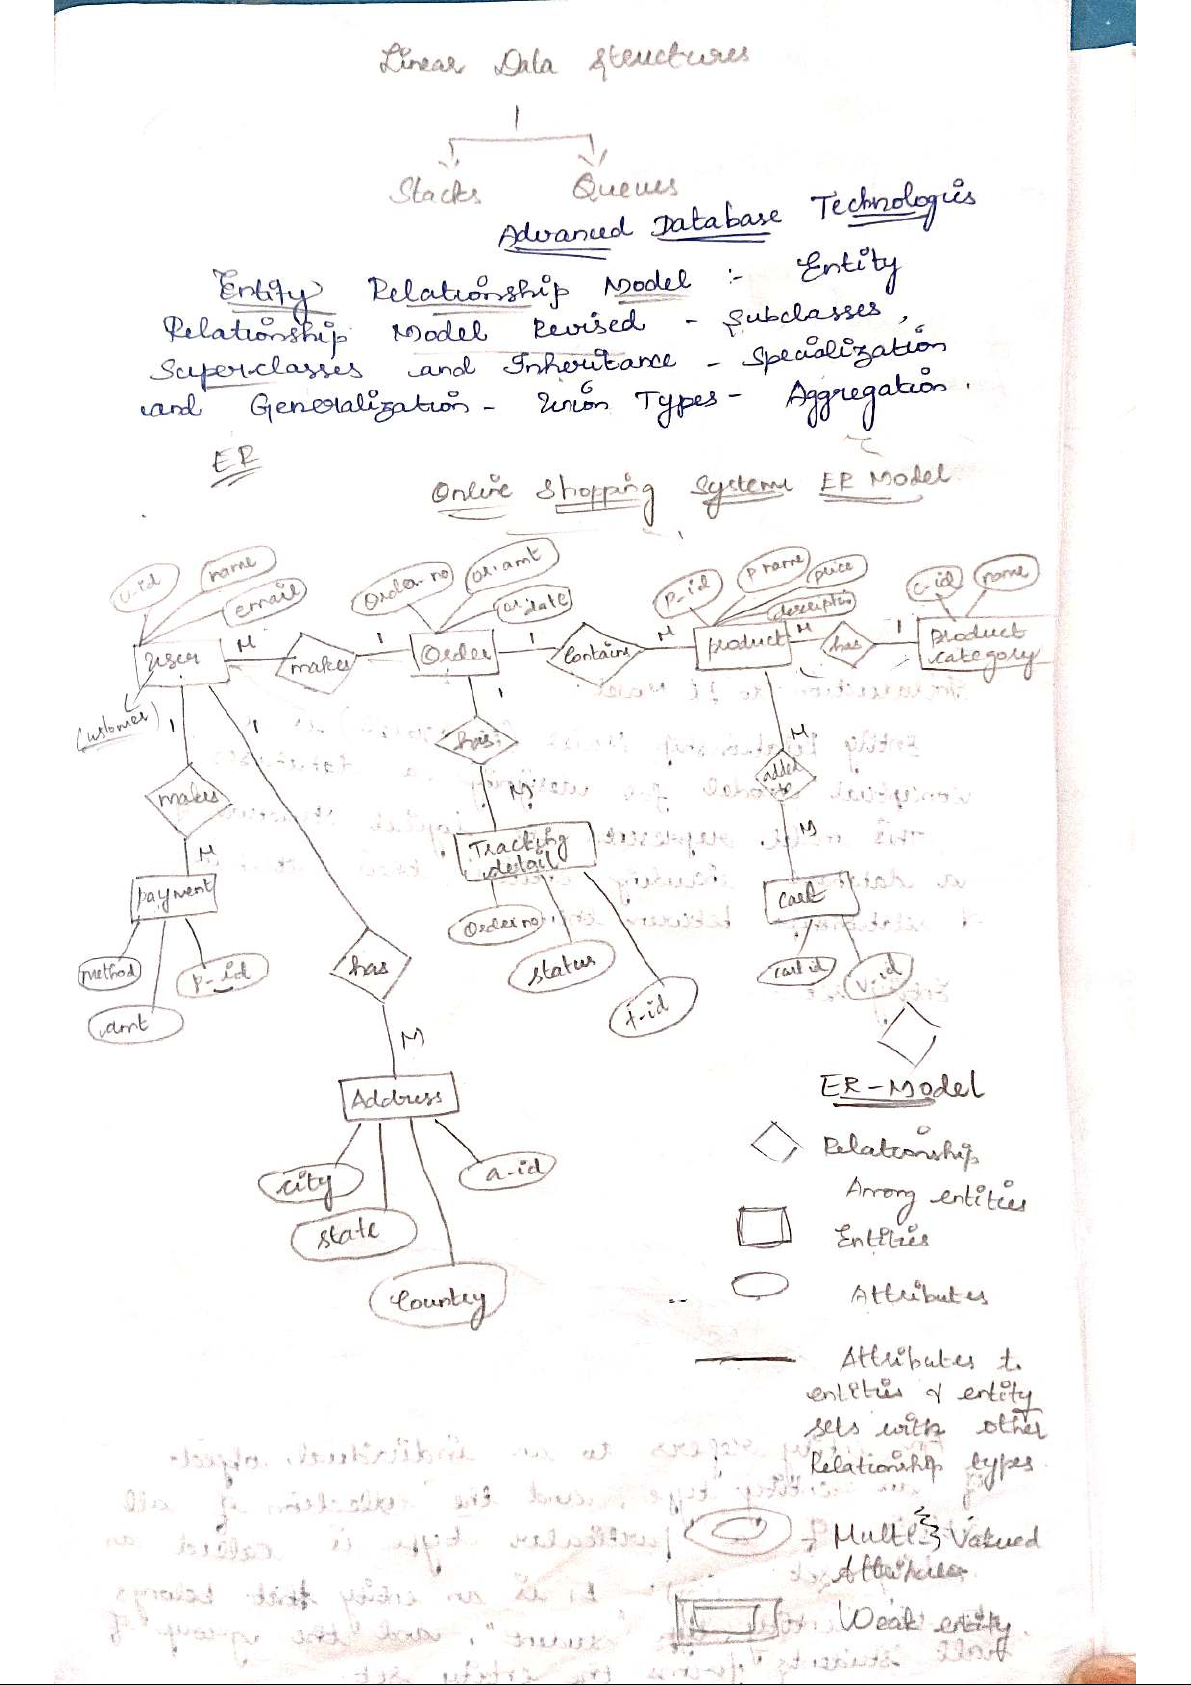 Linear Data Structures
Stacks Queues
Advanced Database Technologies
Entity Relationship Model :- Entity
Relationship Model Revised - Subclasses,
Superclasses and Inheritance - Specialization
and Generalization - Union Types - Aggregation.
ER
Online Shopping System ER Model
u-id name email Order-no or.amt or.date P-id P name price description c-id name
User M makes 1 Order 1 Contains M product M has 1 product category
(ustomer)
1 1 1 M
makes has added to
M M M
payment Tracking detail Cart
method p-id amt
Order no status t-id
cart id v-id
has
M
Address
city state Country a-id
ER-Model
Relationship
Among entities
Entities
Attributes
Attributes to
entities & entity
sets with other
Relationship types
Multi Valued
Attributes
Weak entity